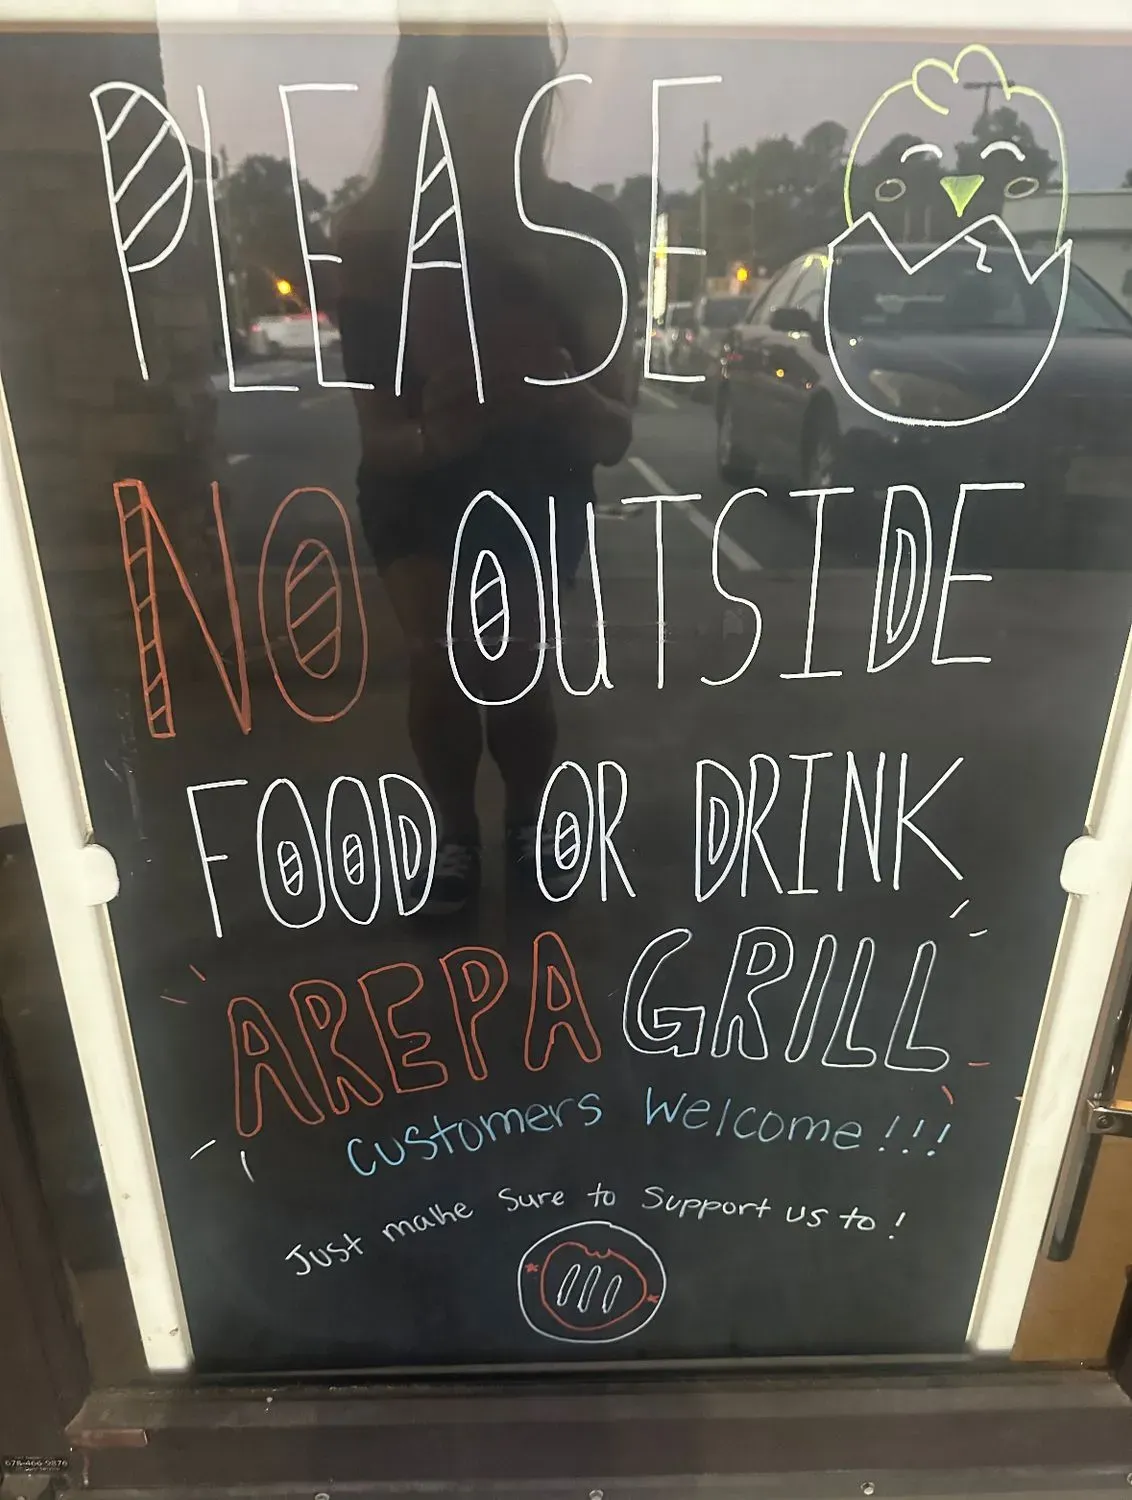 PLEASE
NO OUTSIDE
FOOD OR DRINK
AREPA GRILL
customers Welcome!!!
Just make Sure to Support us to!
678-466-9876